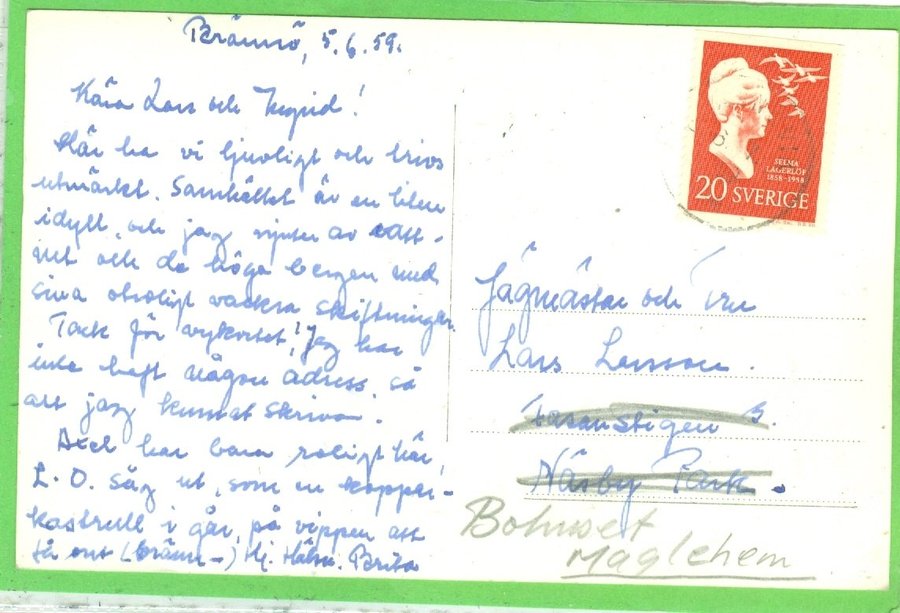 Brännö, 5.6.59.
Kära Lars och Ingrid!
Här ha vi ljuvligt och trivs
utmärkt. Samhället är en liten
idyll, och jag njuter av vatt-
net och de höga bergen med
sina otroligt vackra skiftningar.
Tack för vykortet! Jag har
inte haft någon adress, så
att jag kunnat skriva.
Axel har bara roligt här,
L. O. såg ut, som en koppar-
kastrull i går, på vippen att
få ont (bränn-) Hj. Häls. Brita
SELMA
LAGERLÖF
1858-1958
20 SVERIGE
Jägmästar och Fru
Lars Larsson.
Fasanstigen 3.
Näsby Park.
Bohuset
Maglehem